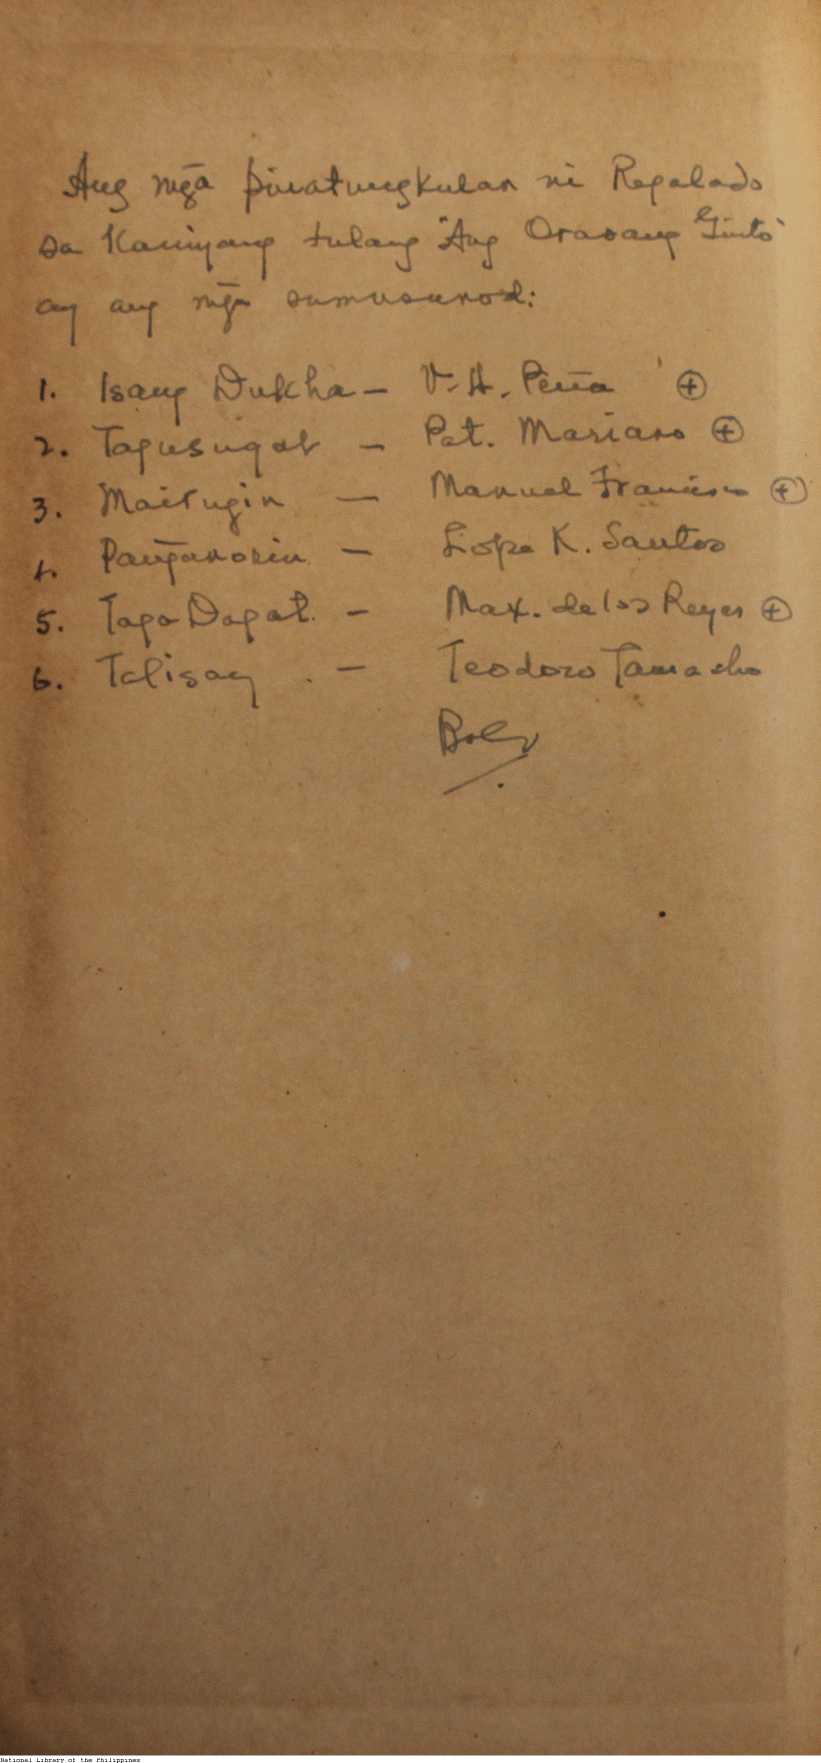 Ang mg̃a pinatungkulan ni Regalado
sa Kaniyang tulang "Ang Orasang Ginto"
ay ang mg̃a sumusunod:
1. Isang Dukha – V. H. Peña ⊕
2. Tagusugat – Pat. Mariano ⊕
3. Mairugin – Manuel Francisco ⊕
4. Pang̃anorin – Lope K. Santos
5. Taga Dagat. – Max. de los Reyes ⊕
6. Talisay . – Teodoro Tamacho
National Library of the Philippines